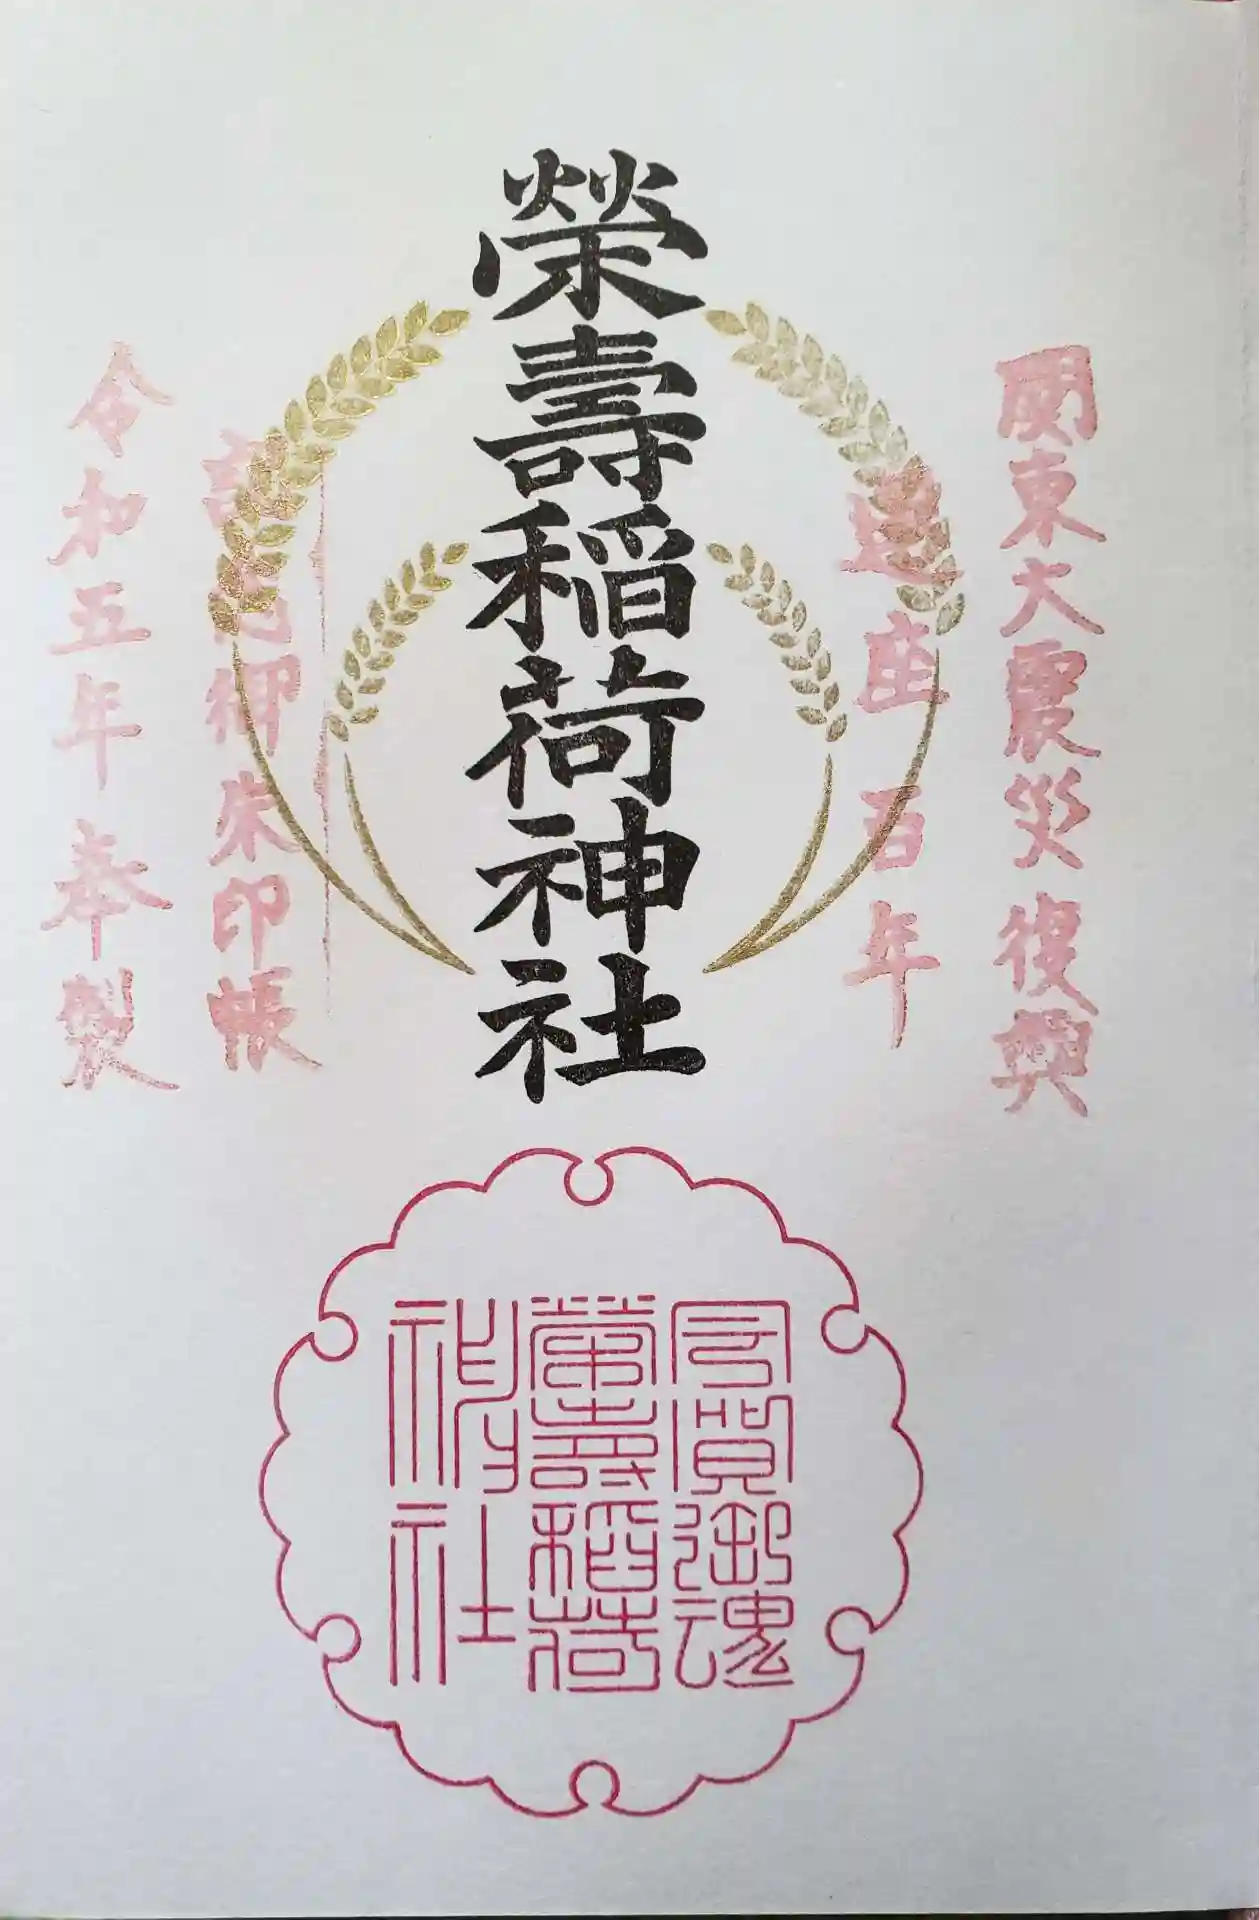 関東大震災復興
遷座百年
榮壽稲荷神社
記念御朱印帳
令和五年奉製
宇賀御魂
榮壽稲荷
神社